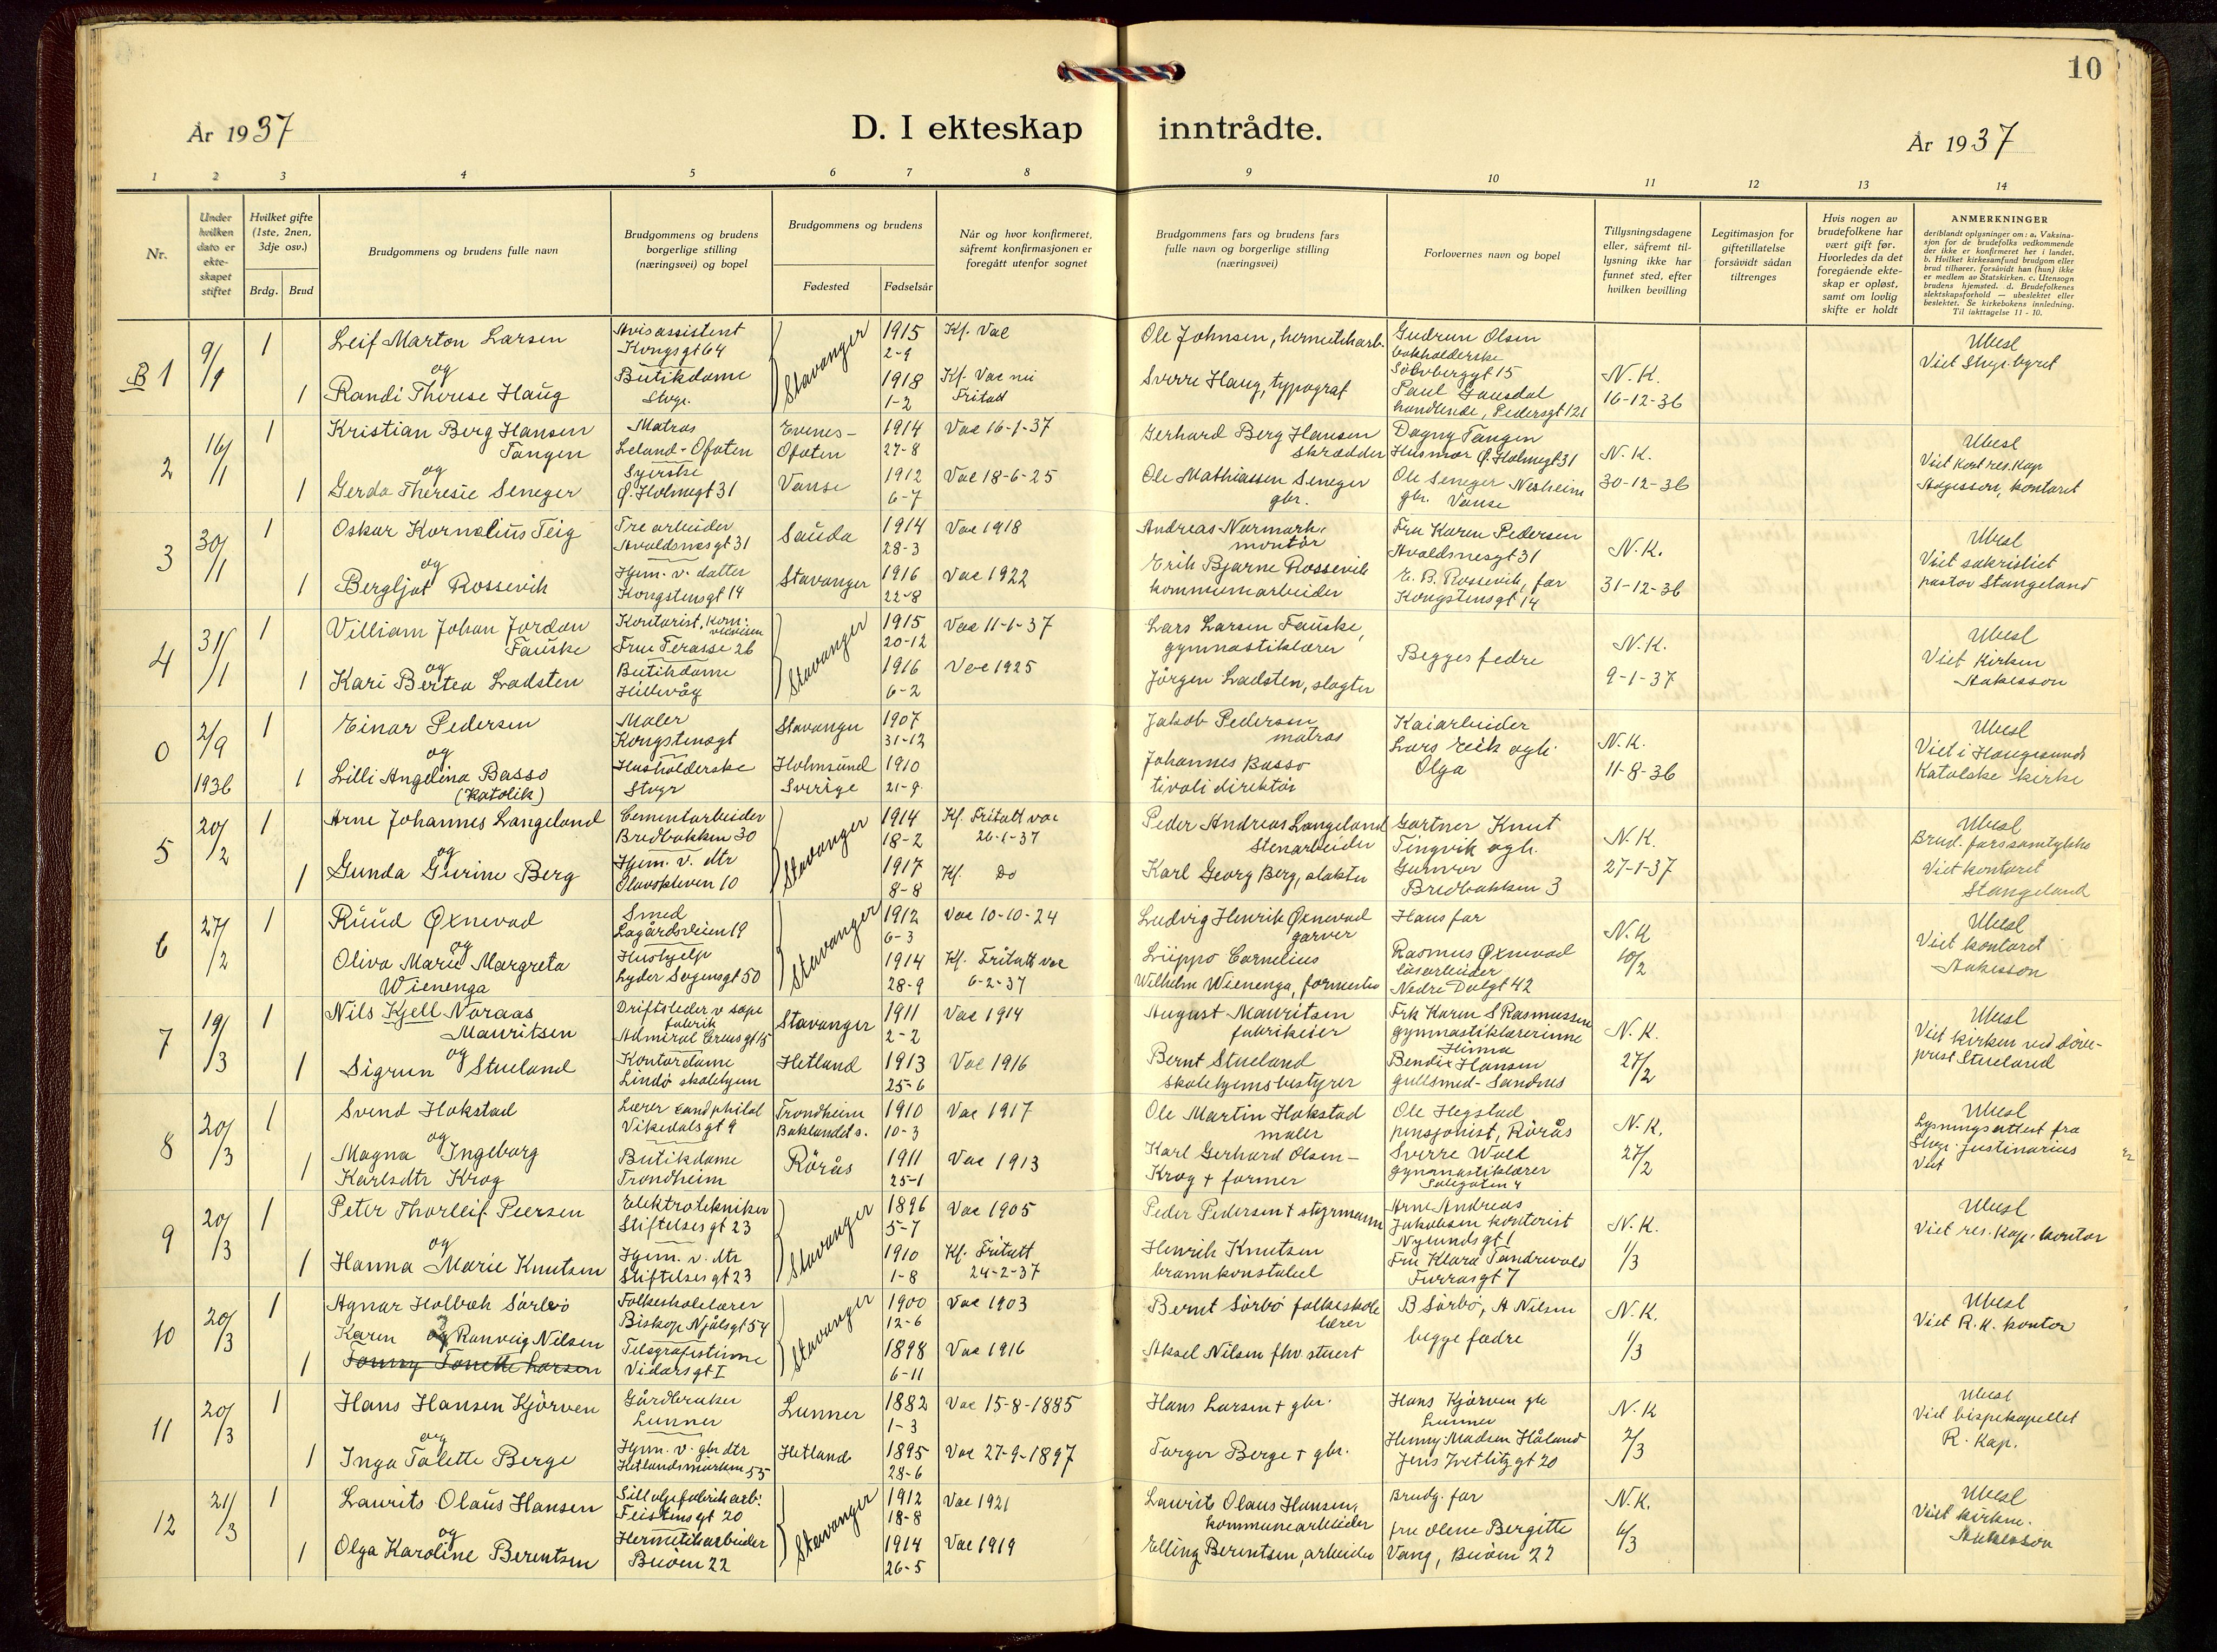 10
År 1937
D. I ekteskap inntrådte.
År 1937
1 2 3 4 5 6 7 8 9 10 11 12 13 14
Nr.
Under hvilken dato er ekteskapet stiftet
Hvilket gifte (1ste, 2nen, 3dje osv.)
Brdg. Brud
Brudgommens og brudens fulle navn
Brudgommens og brudens borgerlige stilling (næringsvei) og bopel
Brudgommens og brudens
Fødested Fødselsår
Når og hvor konfirmeret, såfremt konfirmasjonen er foregått utenfor sognet
Brudgommens fars og brudens fars fulle navn og borgerlige stilling (næringsvei)
Forlovernes navn og bopel
Tillysningsdagene eller, såfremt tillysning ikke har funnet sted, efter hvilken bevilling
Legitimasjon for giftetillatelse forsåvidt sådan tiltrenges
Hvis nogen av brudefolkene har vært gift før. Hvorledes da det foregående ekteskap er opløst, samt om lovlig skifte er holdt
ANMERKNINGER
deriblandt oplysninger om: a. Vaksinasjon for de brudefolks vedkommende der ikke er konfirmeret her i landet. b. Hvilket kirkesamfund brudgom eller brud tilhører, forsåvidt han (hun) ikke er medlem av Statskirken. c. Utensogn brudens hjemsted. d. Brudefolkenes slektskapsforhold — ubeslektet eller beslektet. Se kirkebokens innledning. Til iakttagelse 11 - 10.
B 1 9/1 1 Leif Marton Larsen
Avisassistent
Kongsgt 64
Stavanger 1915
2-9
Kf. Vac
Ole Johnsen, hermetikarb.
Gudrun Olsen
bokholderske
gt 15
Ubesl
Viet Stvgr. byret
og
1 Randi Therese Haug
Butikdame
Stvgr.
1918
1-2
Kf. Vac nei
Fritatt
Sverre Haug, typograf
Paul Gausdal
handlende, Pedersgt 121
N.K.
16-12-36
2 16/1 1 Kristian Berg Hansen
Tangen
Matros
Leland - Ofoten
Evenes -
Ofoten
1914
27-8
Vac 16-1-37
Gerhard Berg Hansen
skrædder
Dagny Tangen
Husmor Ø. Holmegt 31
N.K.
30-12-36
Ubesl
Viet kont res. kap
kontoret
og
1 Gerda Theresie Seneger
Syerske
Ø. Holmegt 31
Vanse
1912
6-7
Vac 18-6-25
Ole Mathiassen Seneger
gbr.
Ole Seneger Nesheim
gbr. Vanse
3 30/1 1 Oskar Kornelius Teig
Trearbeider
Avaldsnesgt 31
Sauda
1914
28-3
Vac 1918
Andreas Normark.
montør
Fru Karen Pedersen
Avaldsnesgt 31
N.K.
31-12-36
Ubesl
Viet sakristiet
pastor Stangeland
og
1 Bergljot Rossevik
Hjem. v. datter
Kongstensgt 14
Stavanger
1916
22-8
Vac 1922
Erik Bjarne Rossevik
kommunearbeider
E. B. Rossevik, far
Kongstensgt 14
4 31/1 1 William Johan Jordan
Fauske
Kontorist,
Frue Terasse 26
Stavanger
1915
20-12
Vac 11-1-37
Lars Larsen Fauske,
gymnastiklærer
Begges fedre
N.K.
9-1-37
Ubesl
Viet kirken
Aakesson
og
1 Kari Bertea Ladsten
Butikdame
Hillevåg
1916
6-2
Vac 1925
Jörgen Ladsten, slagter
0 2/9 1936 1 Einar Pedersen
Maler
Kongstensgt
Stavanger
1907
31-12
Jakob Pedersen
matros
Kaiarbeider
Lars Eeik ogh.
Olga
N.K.
11-8-36
Ubesl
Viet i Haugesunds
Katolske kirke
og
1 Lilli Angelina Basso
(Katolik)
Husholderske
Stvgr
Holmsund
Sverige
1910
21-9
Johannes Basso
tivolidirektör
5 20/2 1 Arne Johannes Langeland
Cementarbeider
Bredbakken 30
Stavanger
1914
18-2
Kf. Fritatt vac
26-1-37
Peder Andreas Langeland
Stenarbeider
Gartner Knut
Tingvik ogh.
Gunvor
Bredbakken 3
N.K.
27-1-37
Ubesl
Brud. fars samtykke
Viet kontoret
Stangeland
og
1 Gunda Gurine Berg
Hjem. v. dtr
Olavskleven 10
1917
8-8
Kf. Do
Karl Georg Berg, slakter
6 27/2 1 Ruud Øxnevad
Smed
Lagårdsveien 19
Stavanger
1912
6-3
Vac 10-10-24
Ludvig Henrik Øxnevad
garver
Hans far
N.K
10/2
Ubesl
Viet kontoret
Aakesson
og
Oliva Marie Margreta
Wienenga
Hushjelp
Lyder Sagensgt 50
1914
28-9
Kf. Fritatt vac
6-2-37
Lüppo Cornelius
Wilhelm Wienenga,
Rasmus Øxnevad
Nedre Dalgt 42
7 19/3 1 Nils Kjell Noraas
Mauritsen
Driftsleder v såpe
fabrik
Admiral Cruisgt 15
Stavanger
1911
2-2
Vac 1914
August Mauritsen
fabrikeier
Frk Karen S Rasmussen
gymnastiklærerinne
Hinna
N.K.
27/2
Ubesl
Viet kirken ved döve-
prest Stueland
og
1 Sigrun Stueland
Kontordame
Lindö skolehjem
Hetland
1913
25-6
Vac 1916
Bernt Stueland
skolehjemsbestyrer
Bendix Hansen
gullsmed - Sandnes
8 20/3 1 Svend Hokstad
Lærer cand philol
Vikedalsgt 9
Trondheim
Baklandet s.
1910
10-3
Vac 1917
Ole Martin Hokstad
maler
Ole Hegstad
pensjonist, Rörås
N.K.
27/2
Ubesl
Lysningsattest fra
Stvgr. justinarius
Viet
og
1 Magna Ingeborg
Karlsdtr Krog
Butikdame
Trondheim
Rörås
1911
25-1
Vac 1913
Karl Gerhard Olsen -
Krog + former
Sverre Wold
Gymnastiklærer
Solegaten 4
9 20/3 1 Peter Thorleif Peersen
Elektrotekniker
Stiftelsesgt 23
Stavanger
1896
5-7
Vac 1905
Peder Pedersen + styrmann
Arne Andreas
Jakobsen kontorist
Nylundsgt 1
N.K.
1/3
Ubesl
Viet res. kap. kontor
og
1 Hanna Marie Knutsen
Hjem. v. dtr
Stiftelsesgt 23
1910
1-8
Kf. Fritatt
24-2-37
Henrik Knutsen
brannkonstabel
Fru Klara Tandrevold
Furrasgt 7
10 20/3 1 Agnar Holbæk Sørbø
Folkeskolelærer
Biskop Njålsgt 54
Stavanger
1900
12-6
Vac 1903
Bernt Sörbö folkeskole
lærer
B Sörbö, A Nilsen
begge fædre
N.K.
1/3
Ubesl
Viet R. K. kontor
Karen og Ranveig Nilsen
1 Tomny Tonette Larsen
Telegrafistinne
Vidarsgt 1
1898
6-11
Vac 1916
Aksel Nilsen fhv stuert
11 20/3 1 Hans Hansen Kjörven
Gårdbruker
Lunner
Lunner
1882
1-3
Vac 15-8-1885
Hans Larsen + gbr.
Hans Kjörven gbr
Lunner
N.K
2/3
Ubesl
Viet bispekapellet
R. Kap.
og
1 Inga Talette Berge
Hjem. v. gbr dtr
Hetlandsmarken 55
Hetland
1895
28-6
Vac 27-9-1897
Torger Berge + gbr.
Henny Madsen Håland
Jens Zetlitz gt 20
12 21/3 1 Laurits Olaus Hansen
Silloljefabrikarb.
Feistensgt 20
Stavanger
1912
18-8
Vac 1921
Laurits Olaus Hansen,
kommunearbeider
Brudg. far
N.K.
6/3
Ubesl
Viet kirken.
Aakesson
og
1 Olga Karoline Berentsen
Hermetikarbeider
Buöen 22
1914
26-5
Vac 1919
Elling Berentsen, arbeider
fru Olene Bergitte
Vang, Buöen 22